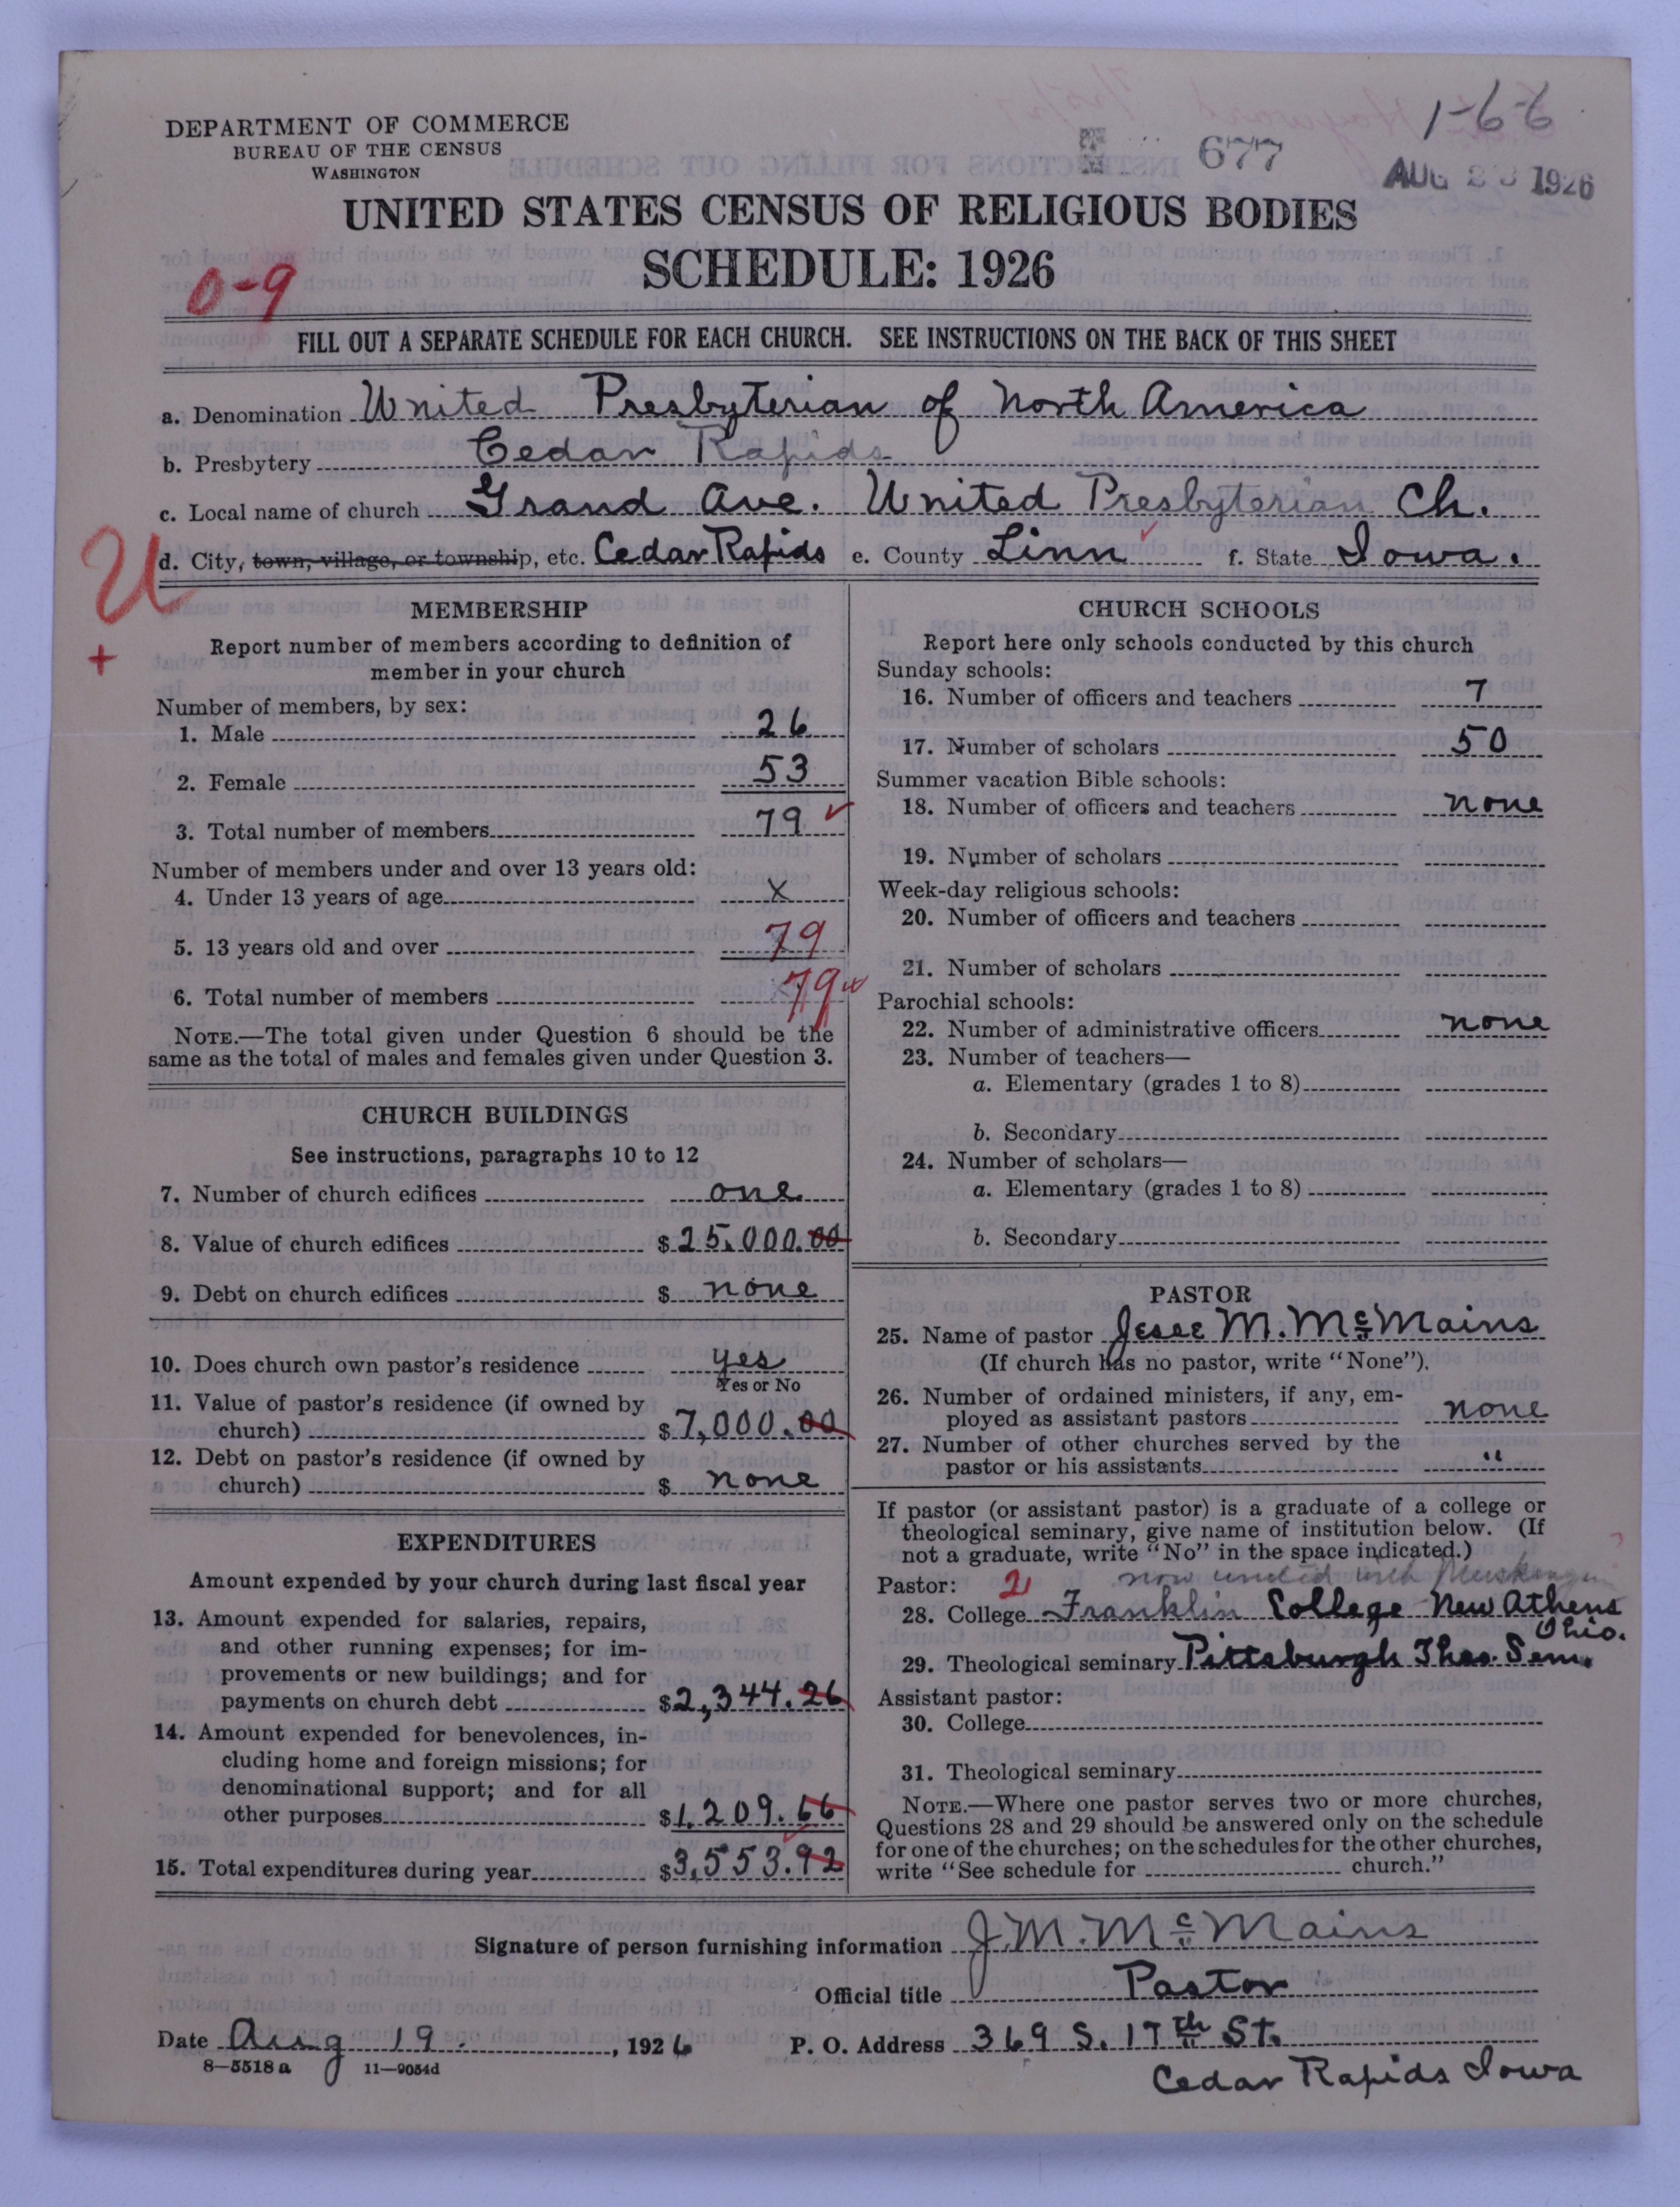 1-6-6
DEPARTMENT OF COMMERCE
BUREAU OF THE CENSUS
WASHINGTON
677
AUG 1926
UNITED STATES CENSUS OF RELIGIOUS BODIES
SCHEDULE: 1926
0-9
FILL OUT A SEPARATE SCHEDULE FOR EACH CHURCH. SEE INSTRUCTIONS ON THE BACK OF THIS SHEET
a. Denomination United Presbyterian of North America
b. Presbytery Cedar Rapids
c. Local name of church Grand Ave. United Presbyterian Ch.
d. City, town, village, or township, etc. Cedar Rapids e. County Linn f. State Iowa.
U
+
MEMBERSHIP
Report number of members according to definition of
member in your church
Number of members, by sex:
1. Male 26
2. Female 53
3. Total number of members 79
Number of members under and over 13 years old:
4. Under 13 years of age x
5. 13 years old and over 79
6. Total number of members 79
NOTE.—The total given under Question 6 should be the
same as the total of males and females given under Question 3.
CHURCH BUILDINGS
See instructions, paragraphs 10 to 12
7. Number of church edifices one
8. Value of church edifices $ 25.000.00
9. Debt on church edifices $ none
10. Does church own pastor's residence yes
Yes or No
11. Value of pastor's residence (if owned by
church) $ 7,000.00
12. Debt on pastor's residence (if owned by
church) $ none
EXPENDITURES
Amount expended by your church during last fiscal year
13. Amount expended for salaries, repairs,
and other running expenses; for im-
provements or new buildings; and for
payments on church debt $2,344.26
14. Amount expended for benevolences, in-
cluding home and foreign missions; for
denominational support; and for all
other purposes $1.209.66
15. Total expenditures during year $3,553.92
CHURCH SCHOOLS
Report here only schools conducted by this church
Sunday schools:
16. Number of officers and teachers 7
17. Number of scholars 50
Summer vacation Bible schools:
18. Number of officers and teachers none
19. Number of scholars
Week-day religious schools:
20. Number of officers and teachers
21. Number of scholars
Parochial schools:
22. Number of administrative officers none
23. Number of teachers—
a. Elementary (grades 1 to 8)
b. Secondary
24. Number of scholars—
a. Elementary (grades 1 to 8)
b. Secondary
PASTOR
25. Name of pastor Jesse M. McMains
(If church has no pastor, write "None").
26. Number of ordained ministers, if any, em-
ployed as assistant pastors none
27. Number of other churches served by the
pastor or his assistants "
If pastor (or assistant pastor) is a graduate of a college or
theological seminary, give name of institution below. (If
not a graduate, write "No" in the space indicated.)
Pastor: 2 now united with Muskingum
28. College Franklin College New Athens
Ohio.
29. Theological seminary Pittsburgh Theo. Sem.
Assistant pastor:
30. College
31. Theological seminary
NOTE.—Where one pastor serves two or more churches,
Questions 28 and 29 should be answered only on the schedule
for one of the churches; on the schedules for the other churches,
write "See schedule for church."
Signature of person furnishing information J. M. McMains
Official title Pastor
Date Aug 19. , 1926 P. O. Address 369 S. 17th St.
8—5518 a 11—9054d
Cedar Rapids Iowa